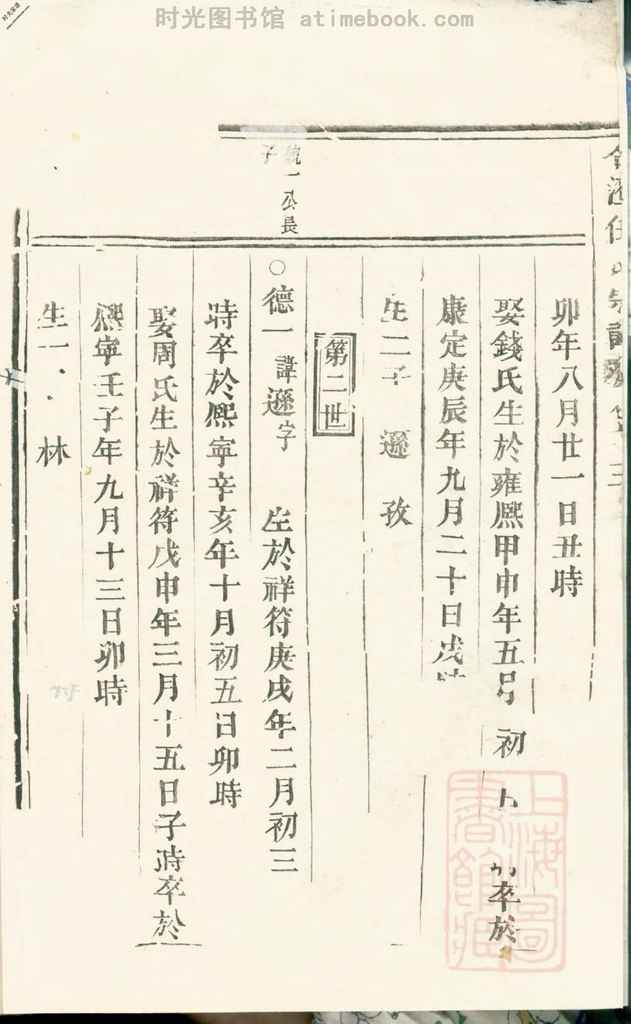 时光图书馆 atimebook.com
卯年八月廿一日丑時
娶錢氏生於雍熈甲申年五月初 卒於
康定庚辰年九月二十日戌時
生二子 遜 孜
第二世
統一公長
子
○德一 諱遜字 生於祥符庚戌年二月初三
時卒於熈寧辛亥年十月初五日卯時
娶周氏生於祥符戊申年三月十五日子時卒於
熈寧壬子年九月十三日卯時
生一 林
上海圖
書館藏